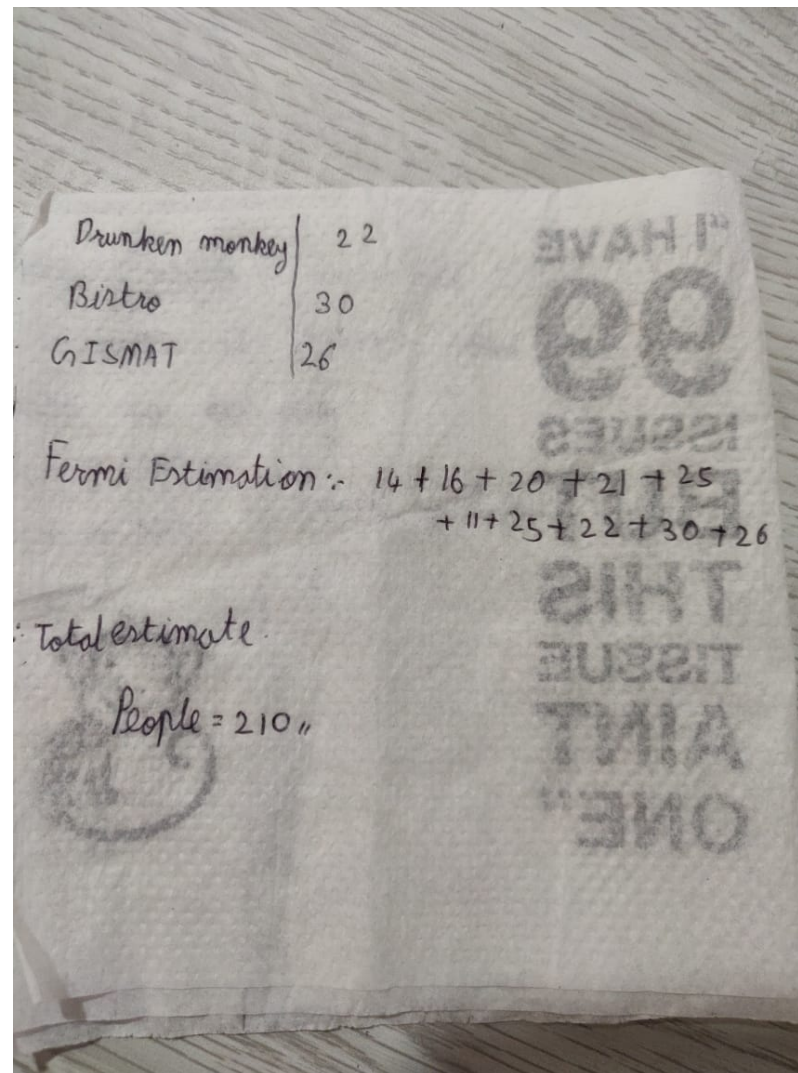 Drunken monkey 22
Bistro 30
GISMAT 26
Fermi Estimation :- 14 + 16 + 20 + 21 + 25
+ 11 + 25 + 22 + 30 + 26
: Total estimate.
People = 210 〃
"I HAVE
99
ISSUES
BUT
THIS
TISSUE
AIN'T
ONE"